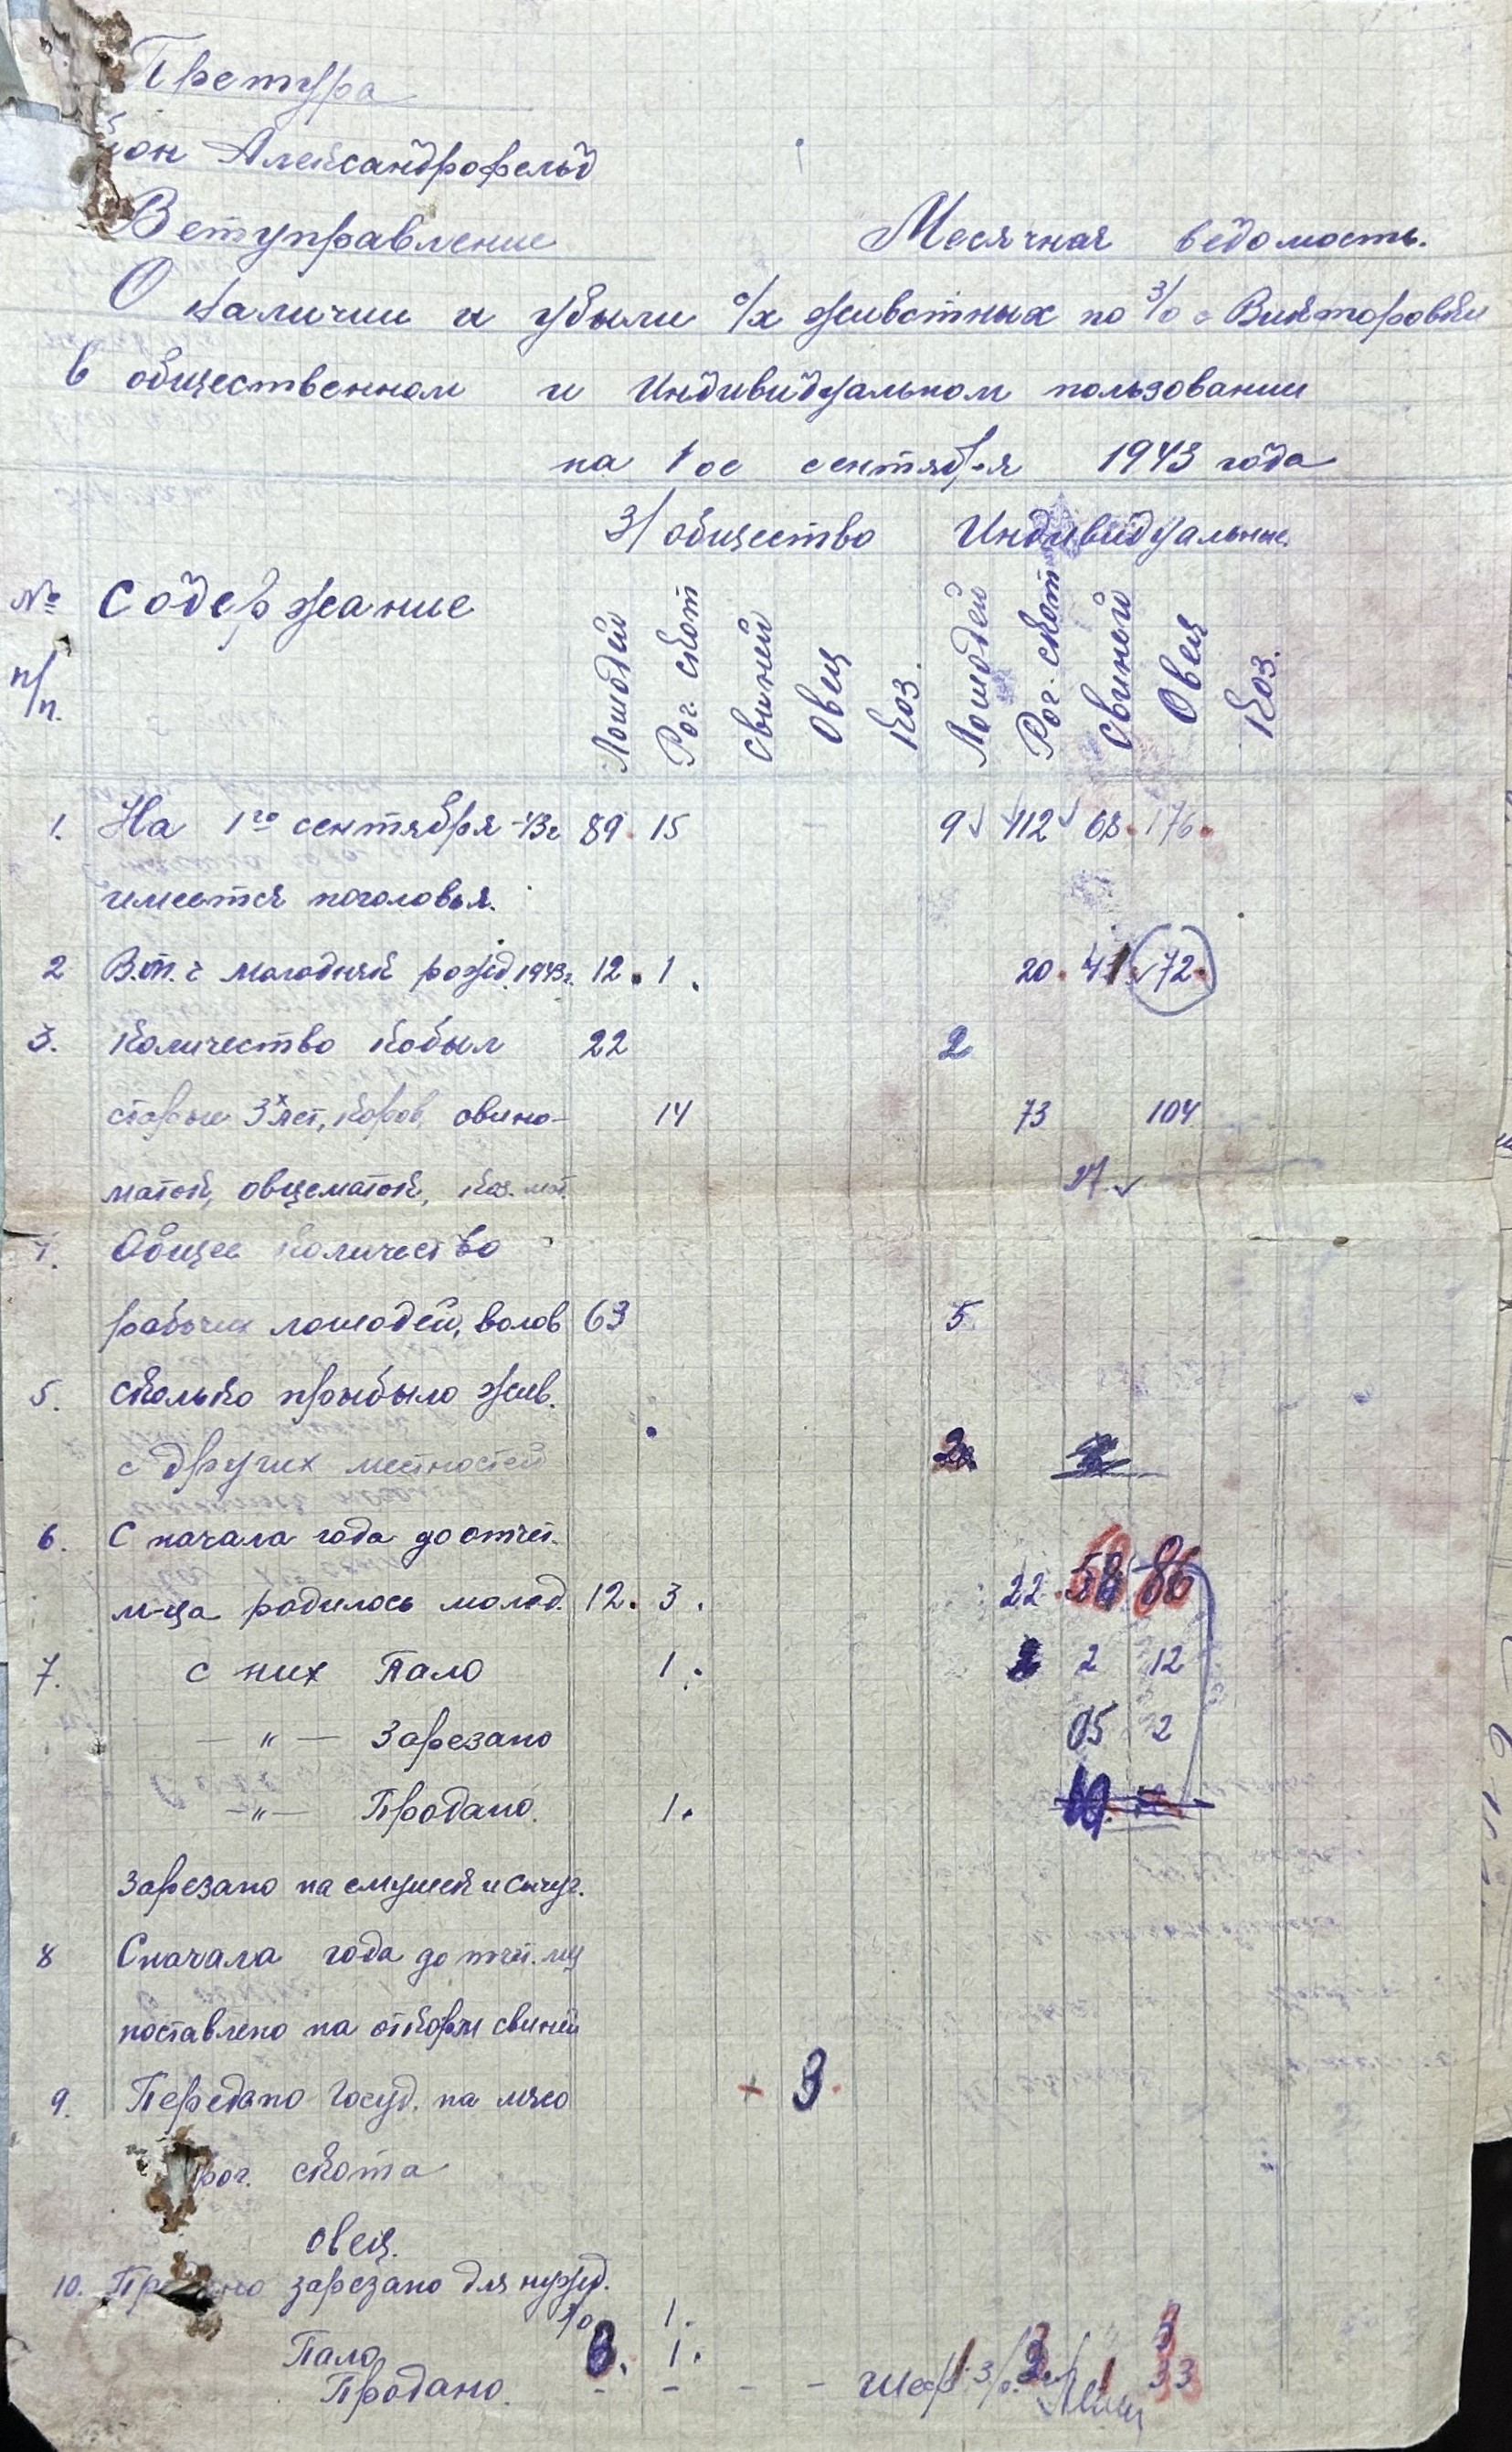 Претура
йон Александрофельд
Ветуправление
Месячная ведомость.
О наличии и убыли с/х животных по з/о с Викторовки
в общественном и индивидуальном пользовании
на 1ое сентября 1943 года
З/общество Индивидуальные
№ п/п. Содержание Лошодей Рог. скот свиней Овец Коз. Лошодей Рог. скот Свиней Овец Коз.
1. На 1го сентября -43г 89. 15 - 9 112 68. 176.
имеется поголовья.
2 В.т.ч молодняк рожд. 1943г. 12. 1. 20. 41. 72.
3. Количество кобыл 22 2
старше 3х лет, коров, свино- 14 73 104
маток, овцематок, коз. мат. 27.
4. Общее количество
рабочих лошодей, волов 63 5
5. сколько прибыло жив.
с других местностей
6. С начала года до отчет.
м-ца родилось молод. 12. 3. 22. 58 86
7. с них Пало 1. 2 12
— " — Зарезано 05 2
— " — Продано. 1.
Зарезано на смушек и сычуг.
8 Сначала года до отчет. мц
поставлено на откорм свиней
9. Передано Госуд. на мясо 3.
рог. скота
овец.
10. зарезано для нужд.
з/о 1.
Пало 6. 1.
Продано. - - - - Шеф з/о. 33